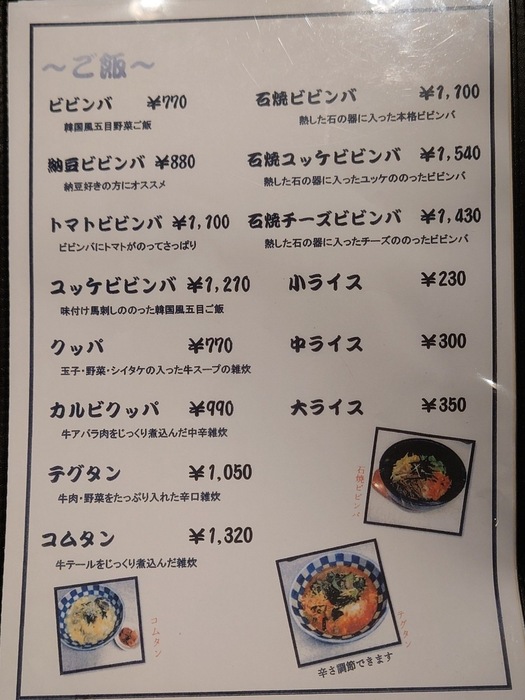 ～ご飯～
ビビンバ ￥770
韓国風五目野菜ご飯
納豆ビビンバ ￥880
納豆好きの方にオススメ
トマトビビンバ ￥1,100
ビビンバにトマトがのってさっぱり
ユッケビビンバ ￥1,210
味付け馬刺しののった韓国風五目ご飯
クッパ ￥770
玉子・野菜・シイタケの入った牛スープの雑炊
カルビクッパ ￥990
牛アバラ肉をじっくり煮込んだ中辛雑炊
テグタン ￥1,050
牛肉・野菜をたっぷり入れた辛口雑炊
コムタン ￥1,320
牛テールをじっくり煮込んだ雑炊
コムタン
石焼ビビンバ ￥1,100
熱した石の器に入った本格ビビンバ
石焼ユッケビビンバ ￥1,540
熱した石の器に入ったユッケののったビビンバ
石焼チーズビビンバ ￥1,430
熱した石の器に入ったチーズののったビビンバ
小ライス ￥230
中ライス ￥300
大ライス ￥350
石焼ビビンバ
テグタン
辛さ調節できます